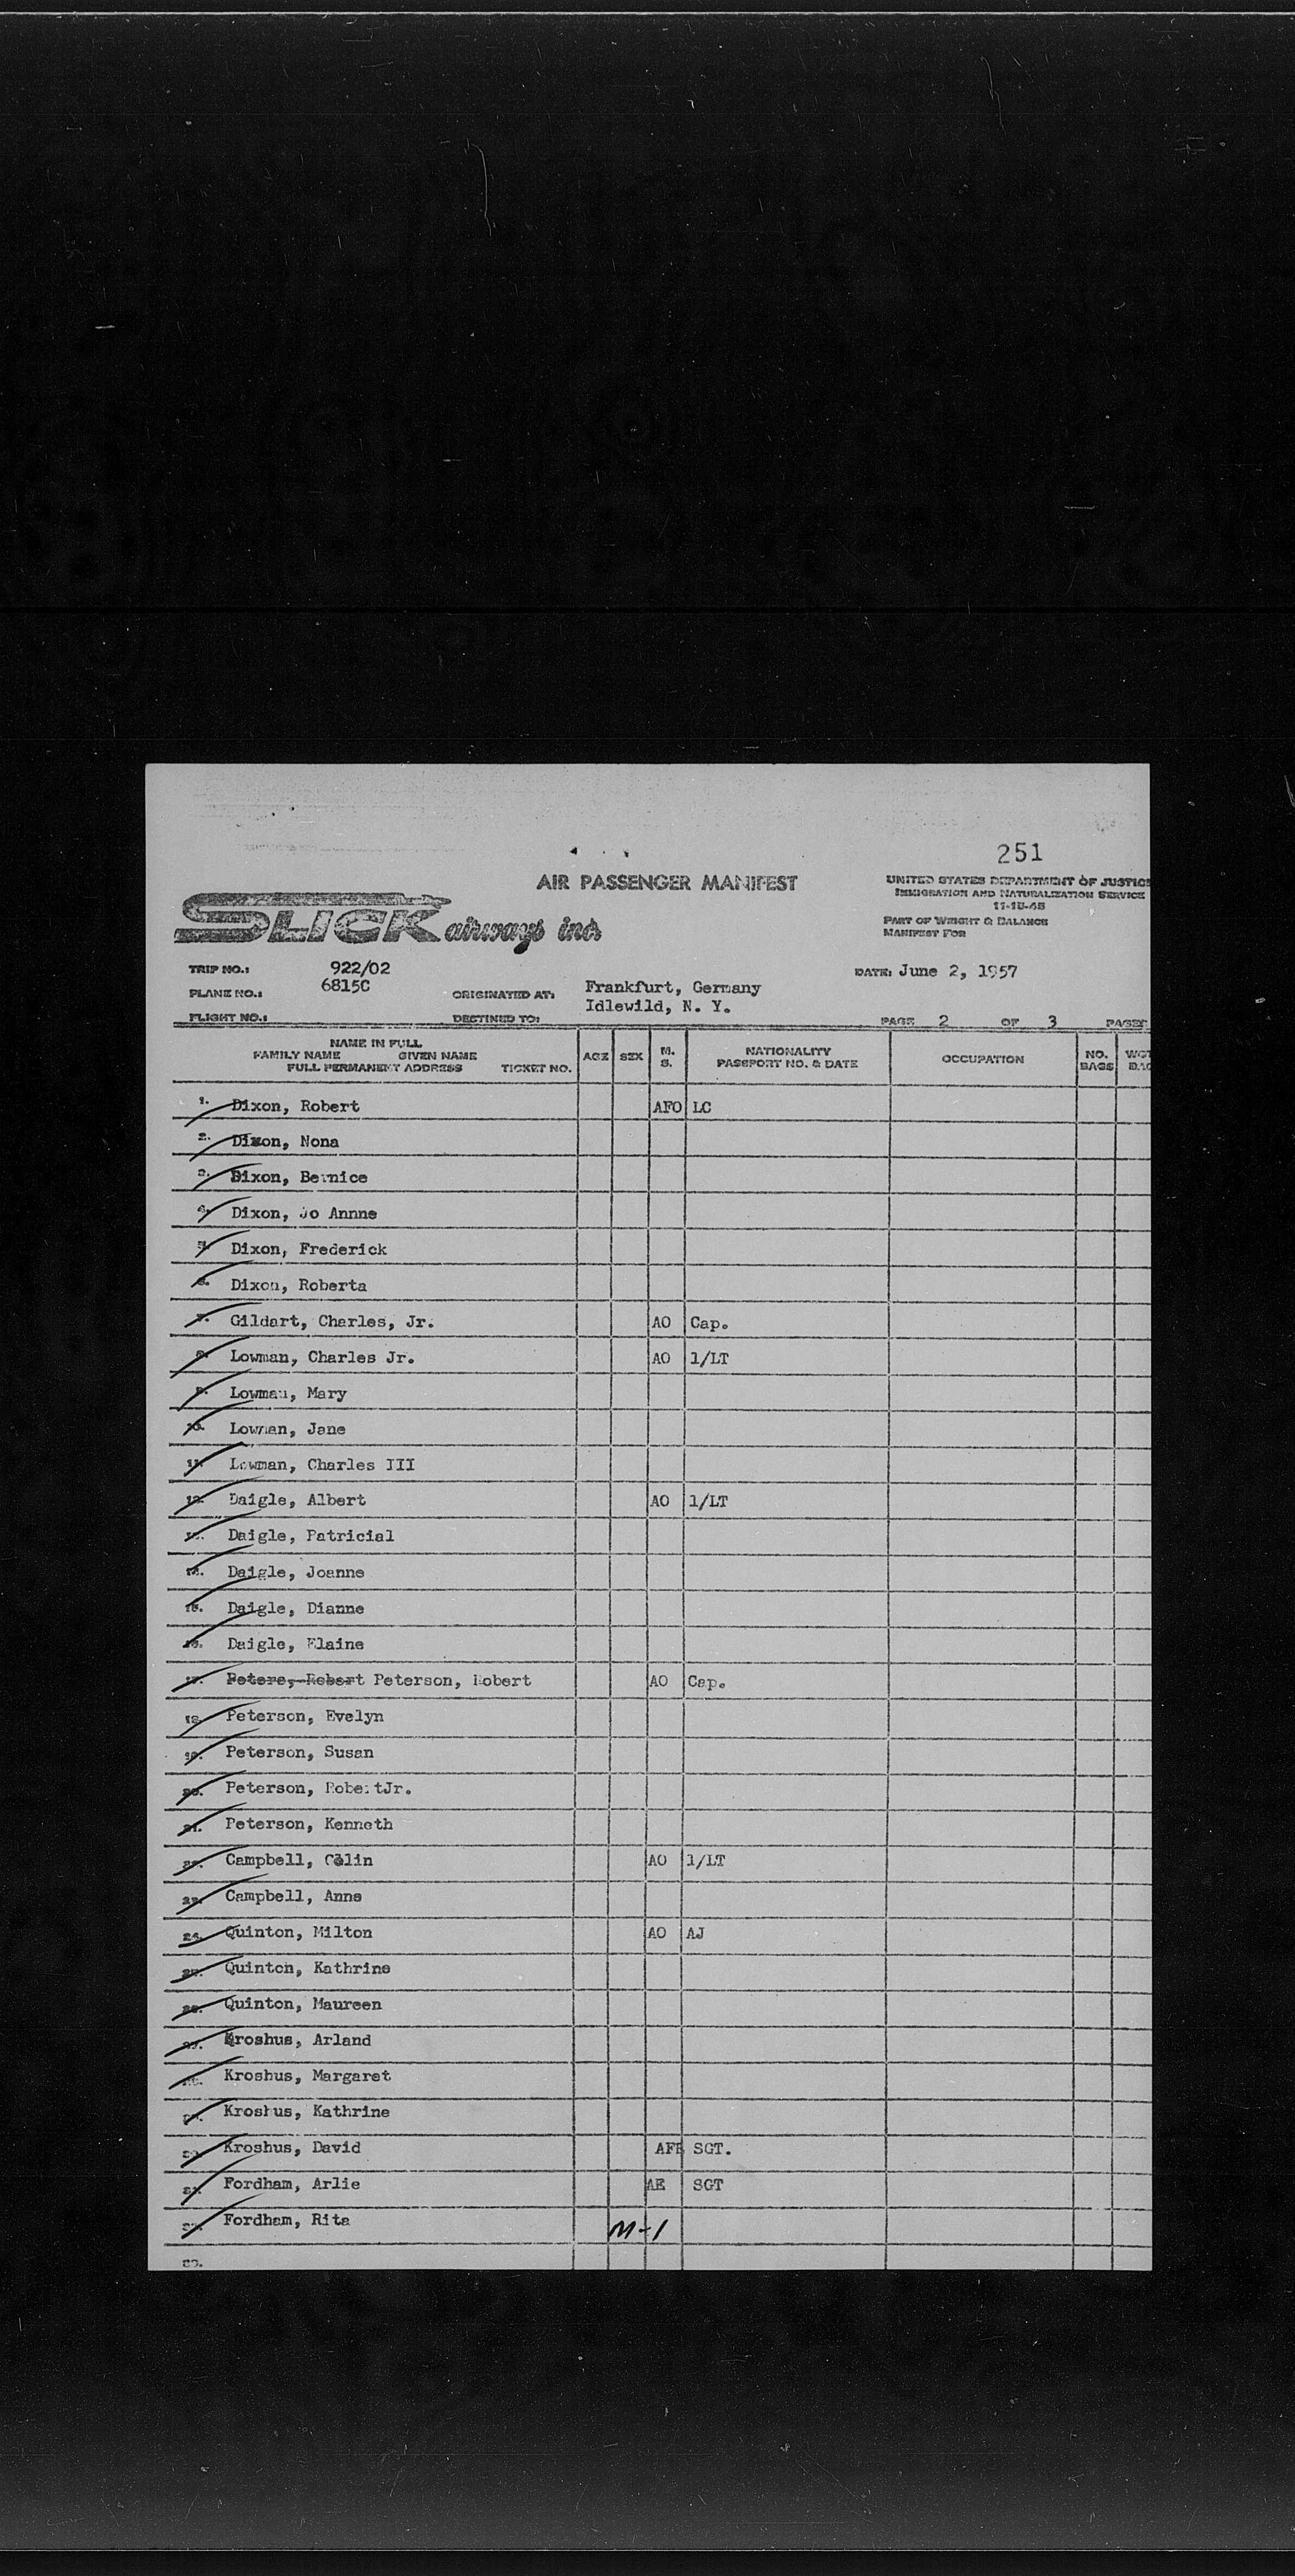 251
AIR PASSENGER MANIFEST
UNITED STATES DEPARTMENT OF JUSTICE
IMMIGRATION AND NATURALIZATION SERVICE
11-18-48
SLICK airways inc.
PART OF WEIGHT & BALANCE
MANIFEST FOR
TRIP NO.: 922/02 DATE: June 2, 1957
PLANE NO.: 6815C ORIGINATED AT: Frankfurt, Germany
FLIGHT NO.: DESTINED TO: Idlewild, N. Y. PAGE 2 OF 3 PAGES
NAME IN FULL
FAMILY NAME GIVEN NAME
FULL PERMANENT ADDRESS TICKET NO. AGE SEX M. S. NATIONALITY PASSPORT NO. & DATE OCCUPATION NO. BAGS WGT
1. Dixon, Robert AFO LC
2. Dixon, Nona
3. Dixon, Bernice
4. Dixon, Jo Annne
5. Dixon, Frederick
6. Dixon, Roberta
7. Gildart, Charles, Jr. AO Cap.
8. Lowman, Charles Jr. AO 1/LT
9. Lowman, Mary
10. Lowman, Jane
11. Lowman, Charles III
12. Daigle, Albert AO 1/LT
13. Daigle, Patricial
14. Daigle, Joanne
15. Daigle, Dianne
16. Daigle, Elaine
17. Peters, Robert Peterson, Robert AO Cap.
18. Peterson, Evelyn
19. Peterson, Susan
20. Peterson, RobertJr.
21. Peterson, Kenneth
22. Campbell, Colin AO 1/LT
23. Campbell, Anne
24. Quinton, Milton AO AJ
25. Quinton, Kathrine
26. Quinton, Maureen
27. Kroshus, Arland
28. Kroshus, Margaret
29. Kroshus, Kathrine
30. Kroshus, David AFE SGT.
31. Fordham, Arlie AE SGT
32. Fordham, Rita M-1
33.